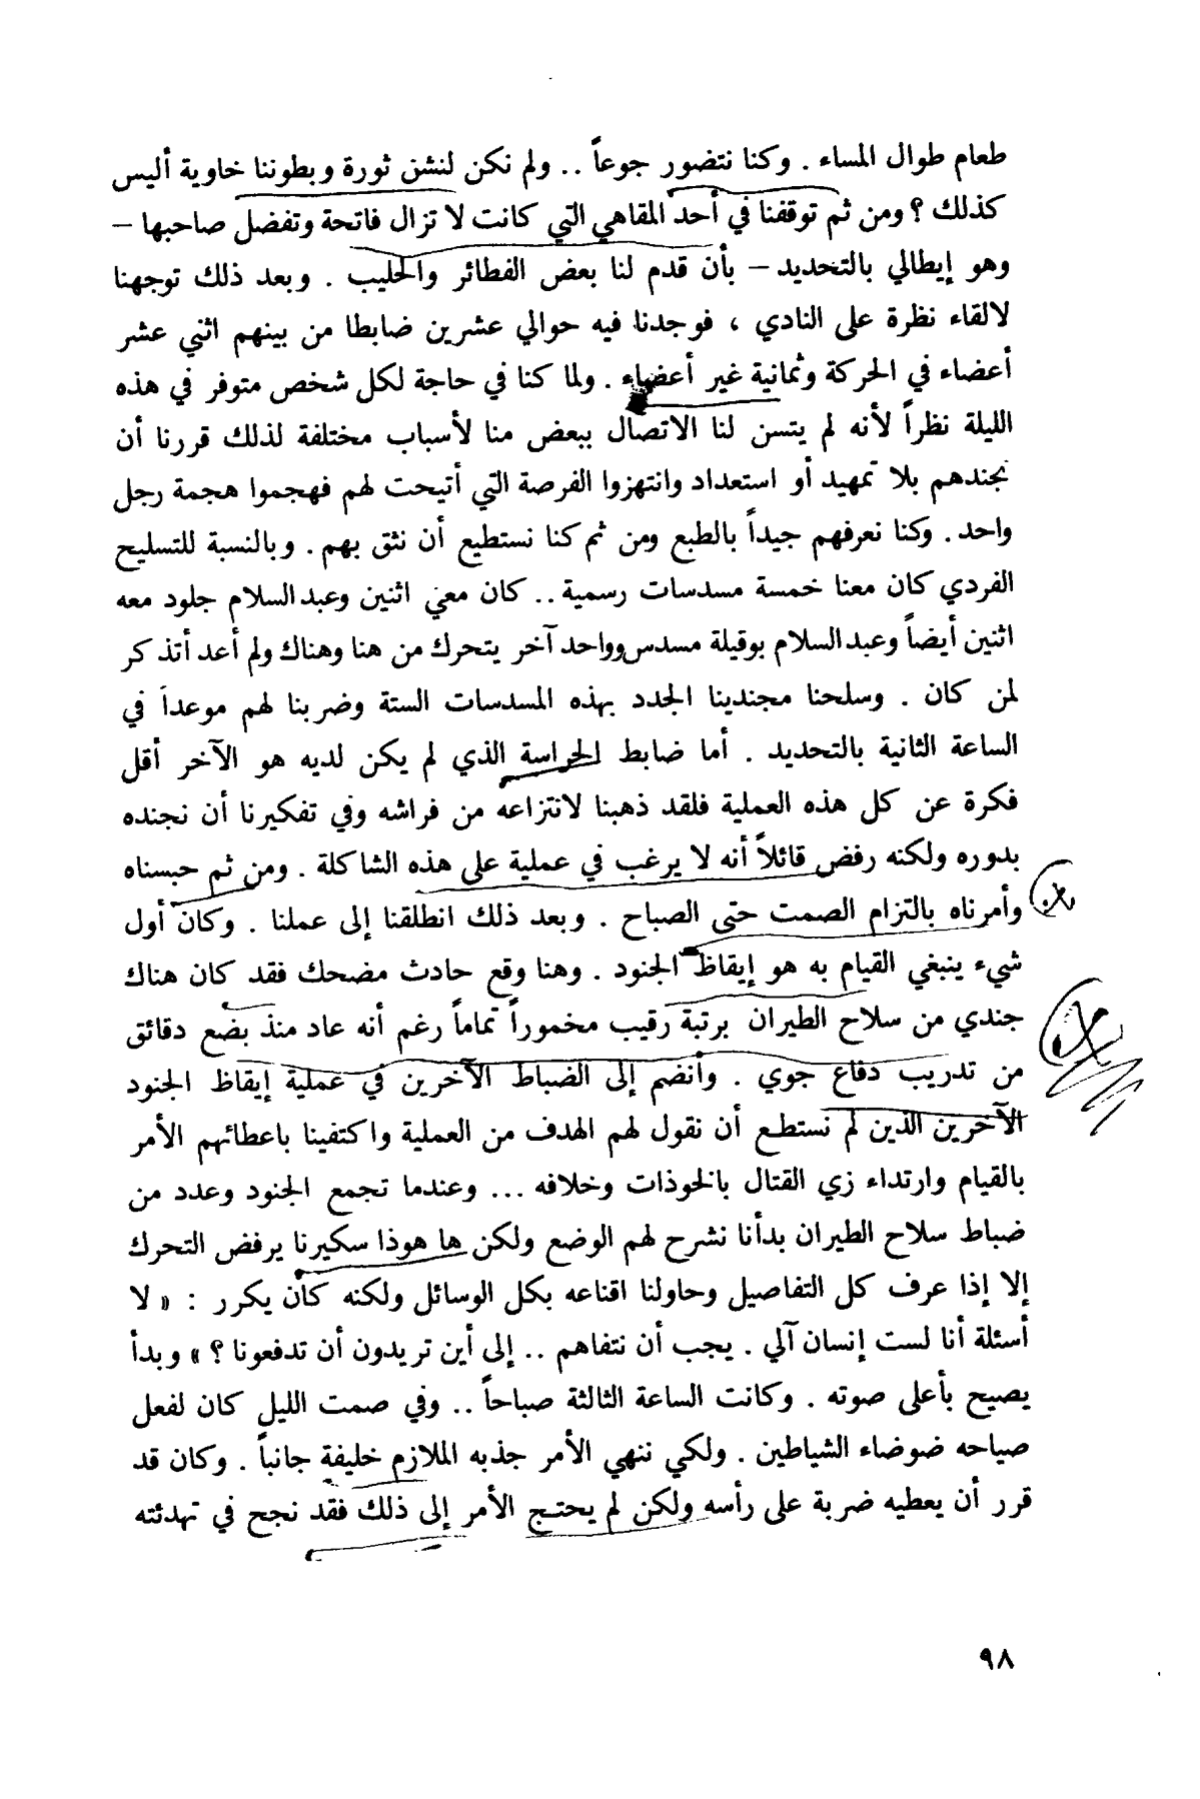 طعام طوال المساء . وكنا نتضور جوعاً .. ولم نكن لنشن ثورة وبطوننا خاوية أليس
كذلك ؟ ومن ثم توقفنا في أحد المقاهي التي كانت لا تزال فاتحة وتفضل صاحبها –
وهو إيطالي بالتحديد – بأن قدم لنا بعض الفطائر والحليب . وبعد ذلك توجهنا
لالقاء نظرة على النادي ، فوجدنا فيه حوالي عشرين ضابطا من بينهم اثني عشر
أعضاء في الحركة وثمانية غير أعضاء . ولما كنا في حاجة لكل شخص متوفر في هذه
الليلة نظراً لأنه لم يتسن لنا الاتصال ببعض منا لأسباب مختلفة لذلك قررنا أن
نجندهم بلا تمهيد أو استعداد وانتهزوا الفرصة التي أتيحت لهم فهجموا هجمة رجل
واحد . وكنا نعرفهم جيداً بالطبع ومن ثم كنا نستطيع أن نثق بهم . وبالنسبة للتسليح
الفردي كان معنا خمسة مسدسات رسمية .. كان معي اثنين وعبد السلام جلود معه
اثنين أيضاً وعبد السلام بوقيلة مسدس وواحد آخر يتحرك من هنا وهناك ولم أعد أتذكر
لمن كان . وسلحنا مجندينا الجدد بهذه المسدسات الستة وضربنا لهم موعداً في
الساعة الثانية بالتحديد . أما ضابط الحراسة الذي لم يكن لديه هو الآخر أقل
فكرة عن كل هذه العملية فلقد ذهبنا لانتزاعه من فراشه وفي تفكيرنا أن نجنده
بدوره ولكنه رفض قائلاً أنه لا يرغب في عملية على هذه الشاكلة . ومن ثم حبسناه
وأمرناه بالتزام الصمت حتى الصباح . وبعد ذلك انطلقنا إلى عملنا . وكان أول
شيء ينبغي القيام به هو إيقاظ الجنود . وهنا وقع حادث مضحك فقد كان هناك
جندي من سلاح الطيران برتبة رقيب مخموراً تماماً رغم أنه عاد منذ بضع دقائق
من تدريب دفاع جوي . وأنضم إلى الضباط الآخرين في عملية إيقاظ الجنود
الآخرين الذين لم نستطع أن نقول لهم الهدف من العملية واكتفينا باعطائهم الأمر
بالقيام وارتداء زي القتال بالخوذات وخلافه ... وعندما تجمع الجنود وعدد من
ضباط سلاح الطيران بدأنا نشرح لهم الوضع ولكن ها هوذا سكيرنا يرفض التحرك
إلا إذا عرف كل التفاصيل وحاولنا اقناعه بكل الوسائل ولكنه كان يكرر : « لا
أسئلة أنا لست إنسان آلي . يجب أن نتفاهم .. إلى أين تريدون أن تدفعونا ؟ » وبدأ
يصيح بأعلى صوته . وكانت الساعة الثالثة صباحاً .. وفي صمت الليل كان لفعل
صياحه ضوضاء الشياطين . ولكي ننهي الأمر جذبه الملازم خليفة جانباً . وكان قد
قرر أن يعطيه ضربة على رأسه ولكن لم يحتج الأمر إلى ذلك فقد نجح في تهدئته
٩٨